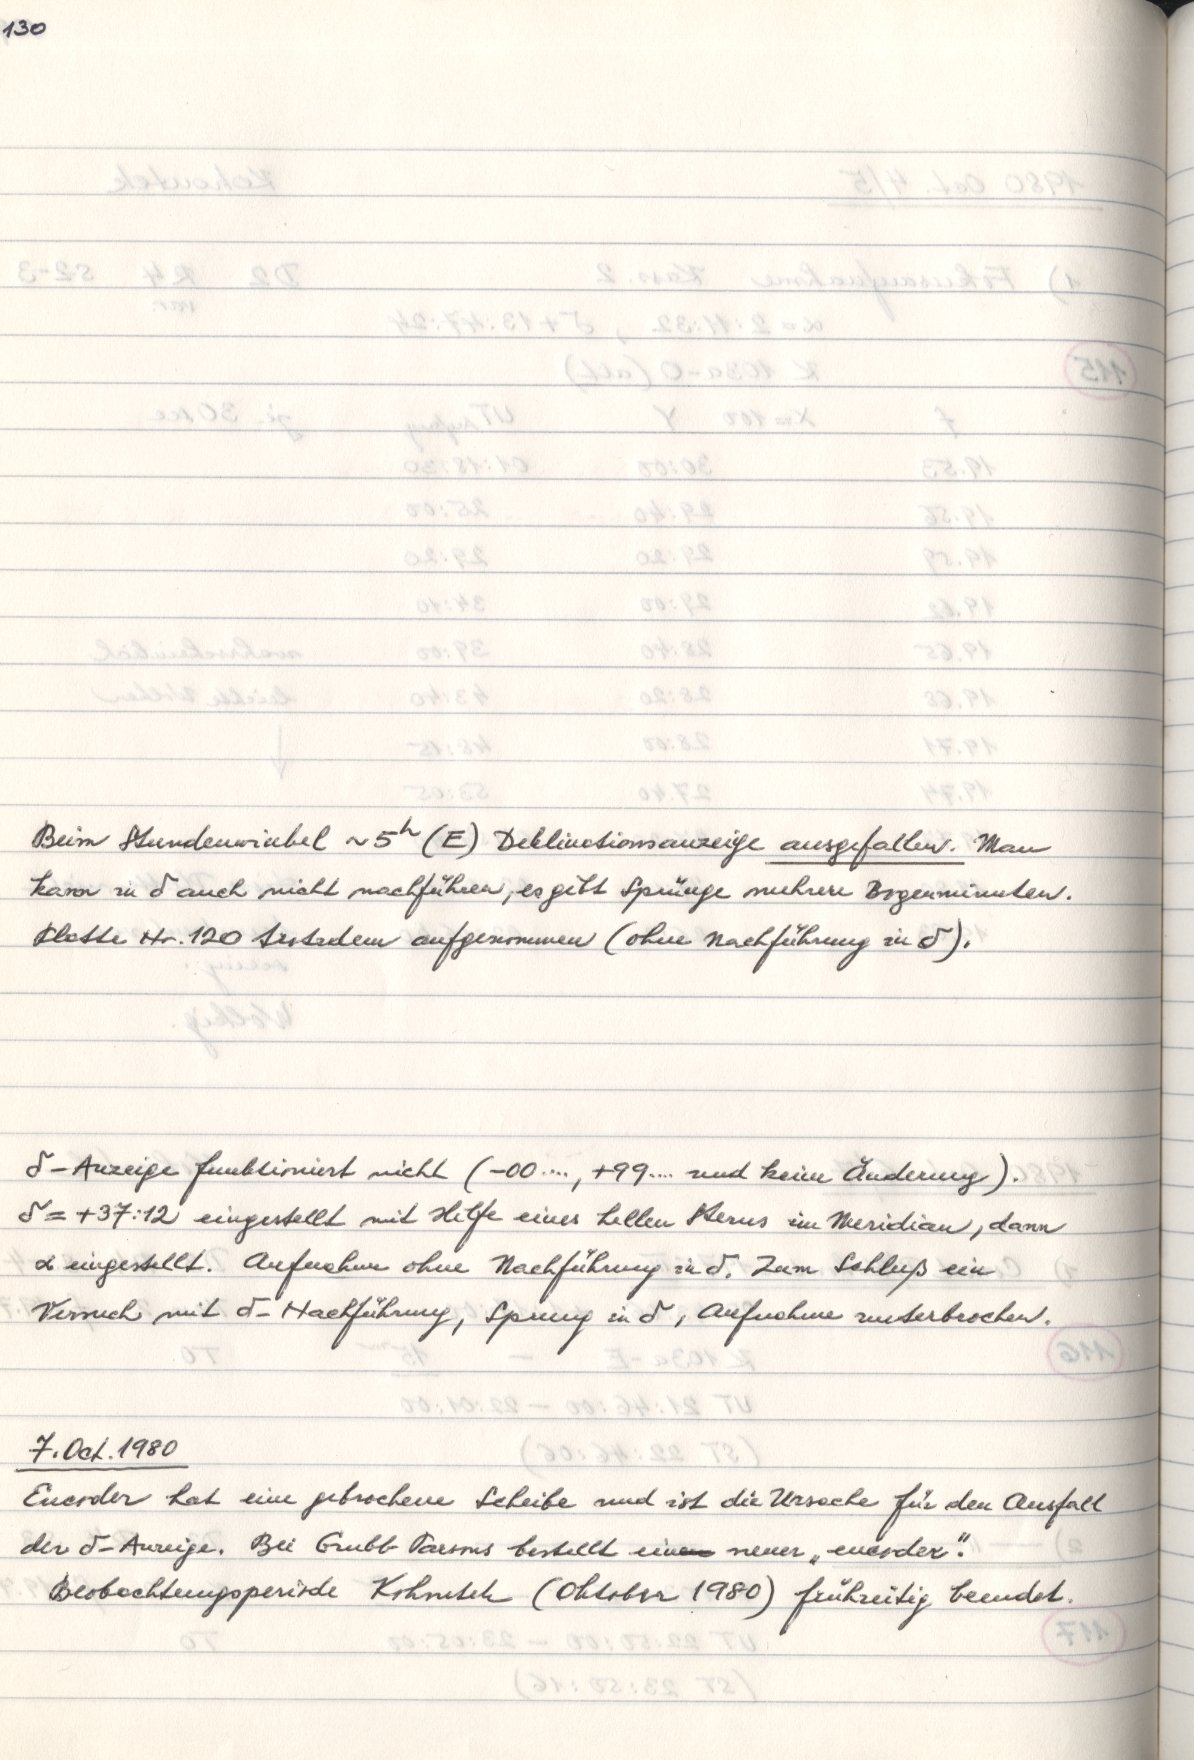 130
Beim Stundenwinkel ~5ʰ (E) Deklinationsanzeige ausgefallen. Man
kann in δ auch nicht nachführen, es gibt Sprünge mehrere Bogenminuten.
Platte Nr. 120 trotzdem aufgenommen (ohne Nachführung in δ).
δ-Anzeige funktioniert nicht (-00...., +99.... und keine Änderung).
δ = +37:12 eingestellt mit Hilfe eines hellen Sterns im Meridian, dann
α eingestellt. Aufnahme ohne Nachführung in δ. Zum Schluß ein
Versuch mit δ-Nachführung, Sprung in δ, Aufnahme unterbrochen.
7. Oct. 1980
Encoder hat eine gebrochene Scheibe und ist die Ursache für den Ausfall
der δ-Anzeige. Bei Grubb Parsons bestellt ein neuer „encoder".
Beobachtungsperiode Kohoutek (Oktober 1980) frühzeitig beendet.